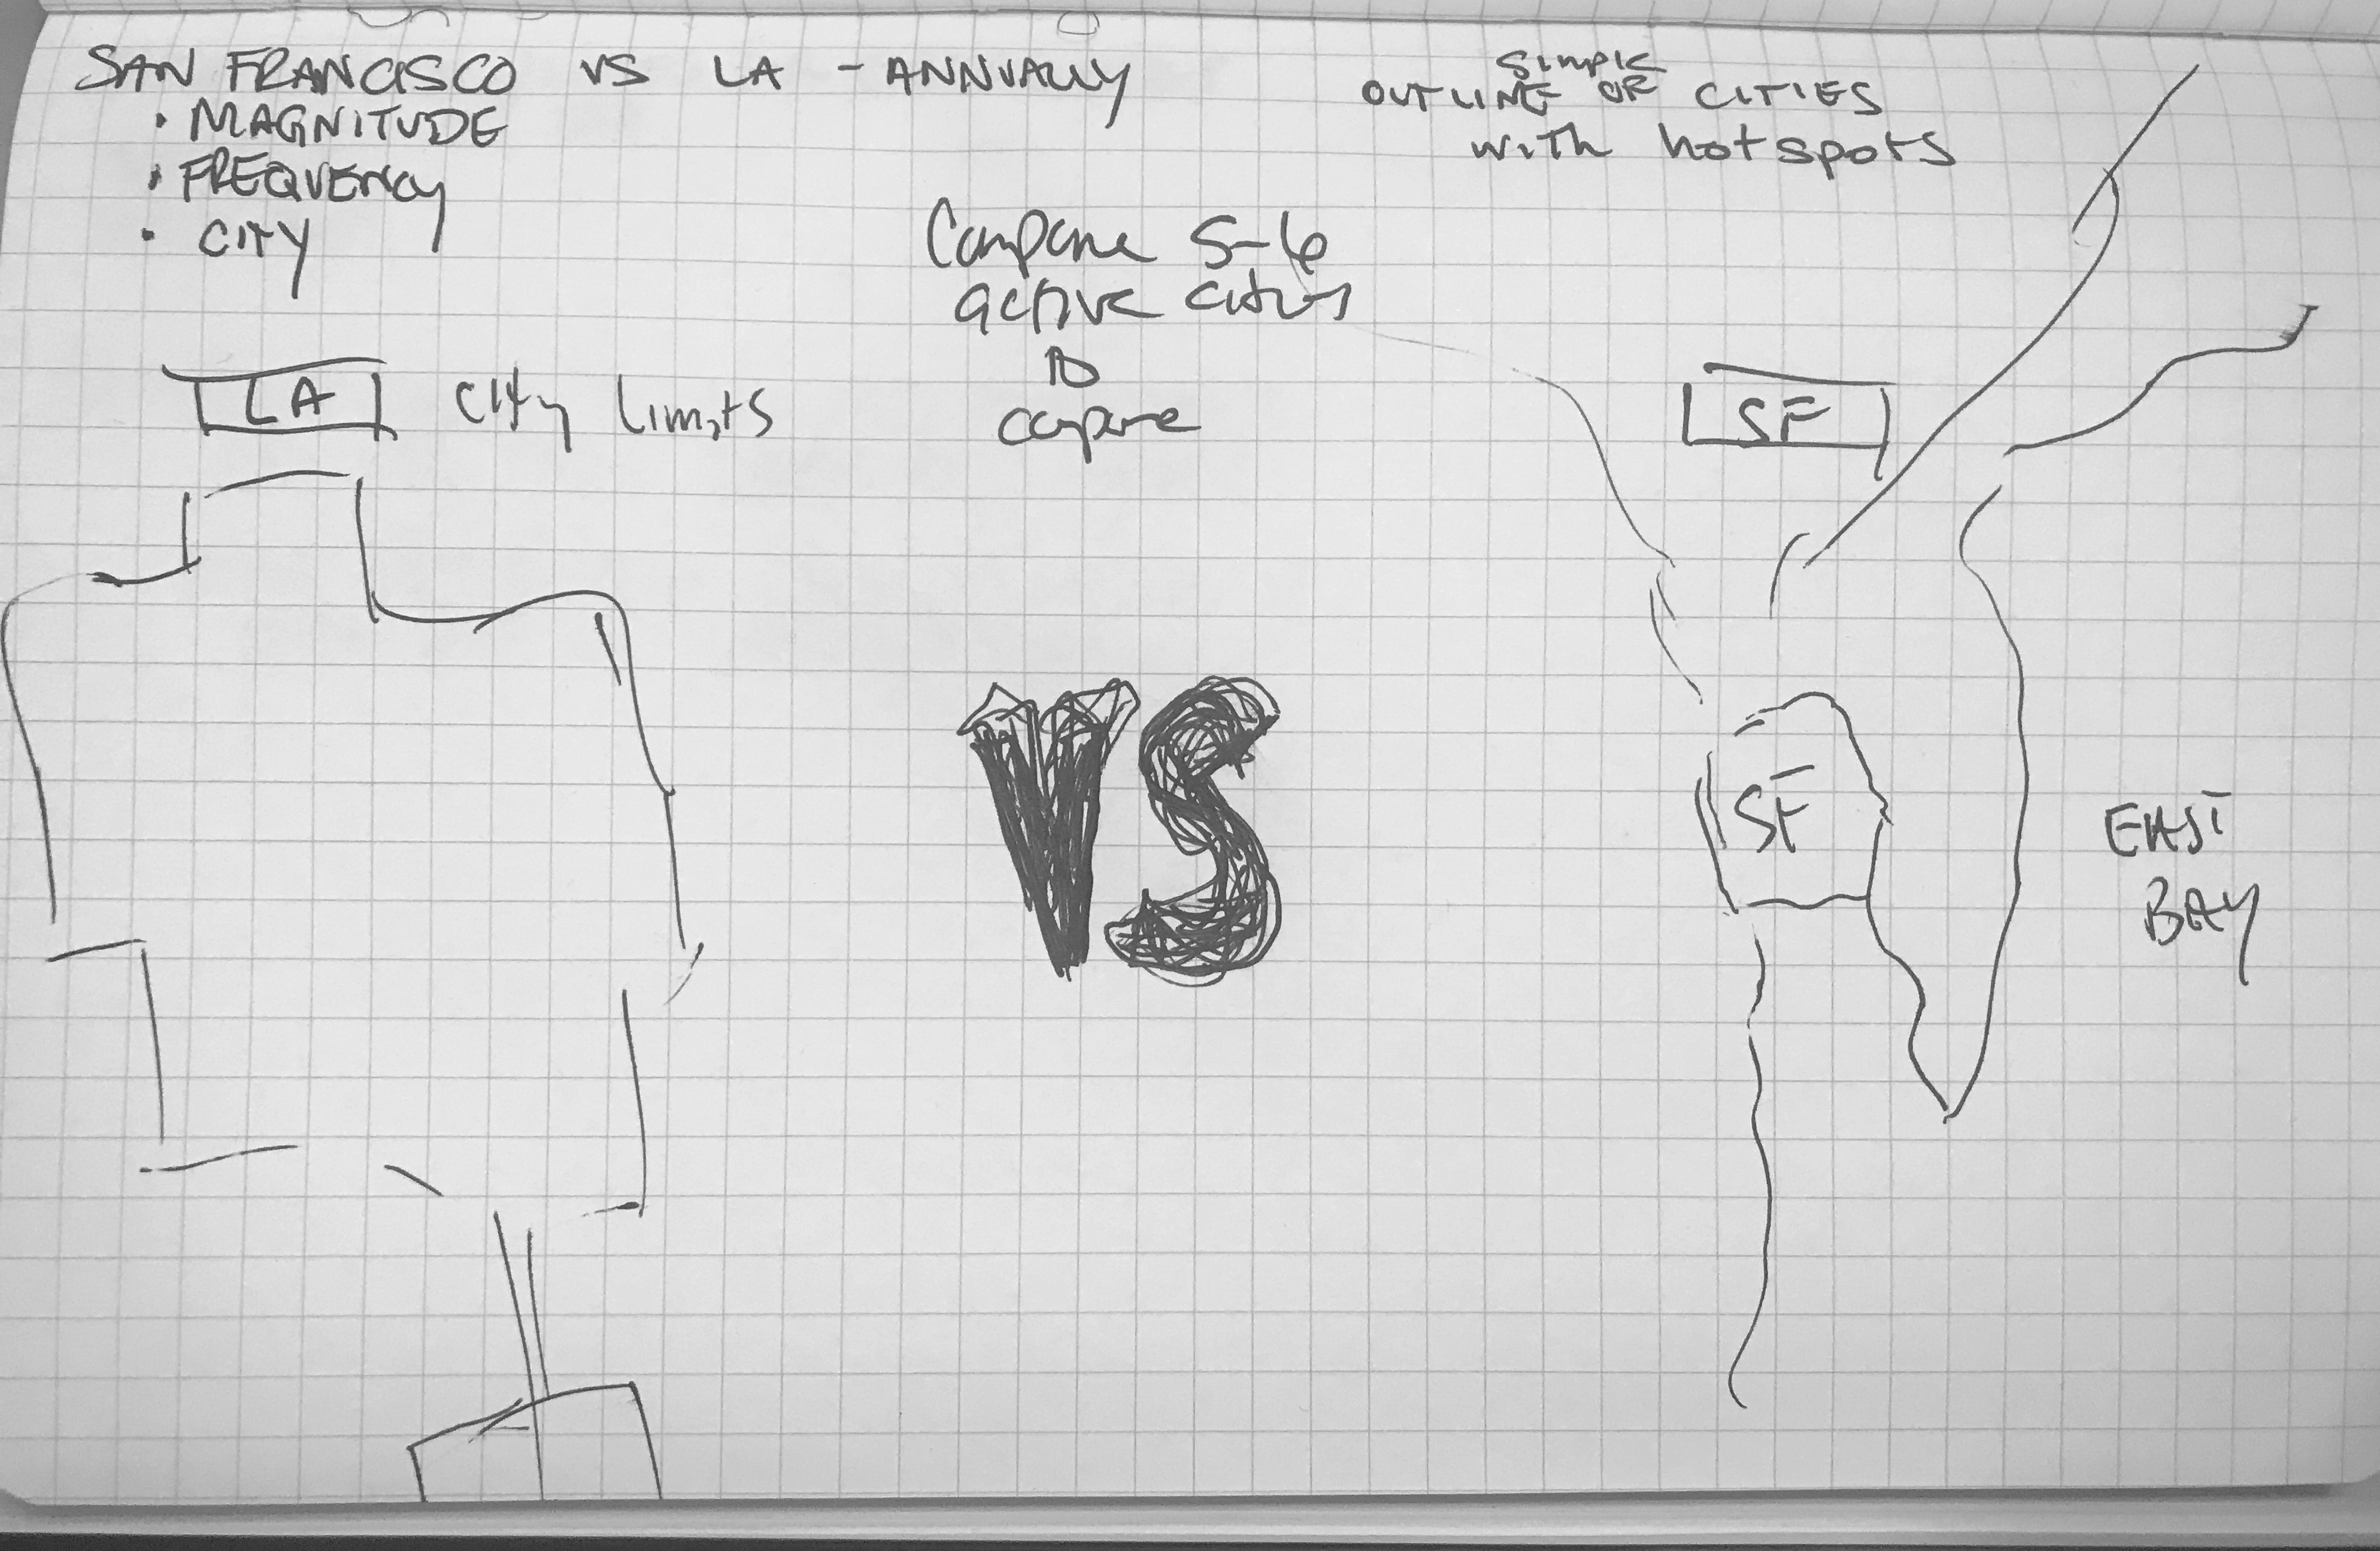 SAN FRANCISCO VS LA - ANNUALLY
• MAGNITUDE
• FREQUENCY
• CITY
simple
OUTLINE OF CITIES
with hotspots
Compare 5-6
active cities
to
compare
LA
City Limits
SF
VS
SF
EAST
BAY